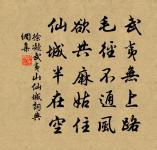 武夷無上路
毛徑不通風
欲共麻姑住
仙城半在空
徐凝武夷山仙城詞典
網集